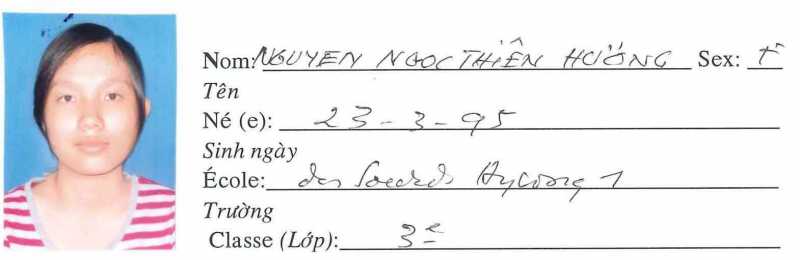 Nom: NGUYEN NGOC THIÊN HƯƠNG Sex: f
Tên
Né (e): 23-3-95
Sinh ngày
École: des Sourds 1
Trường
Classe (Lớp): 3e